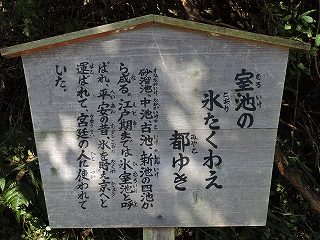 室池の
氷たくわえ
都ゆき
砂溜池、中池、古池、新池の四池か
ら成る。江戸期までは氷室池と呼
ばれ、平安の昔、氷を貯え京へと
運ばれて、宮廷の人に使われて
いた。